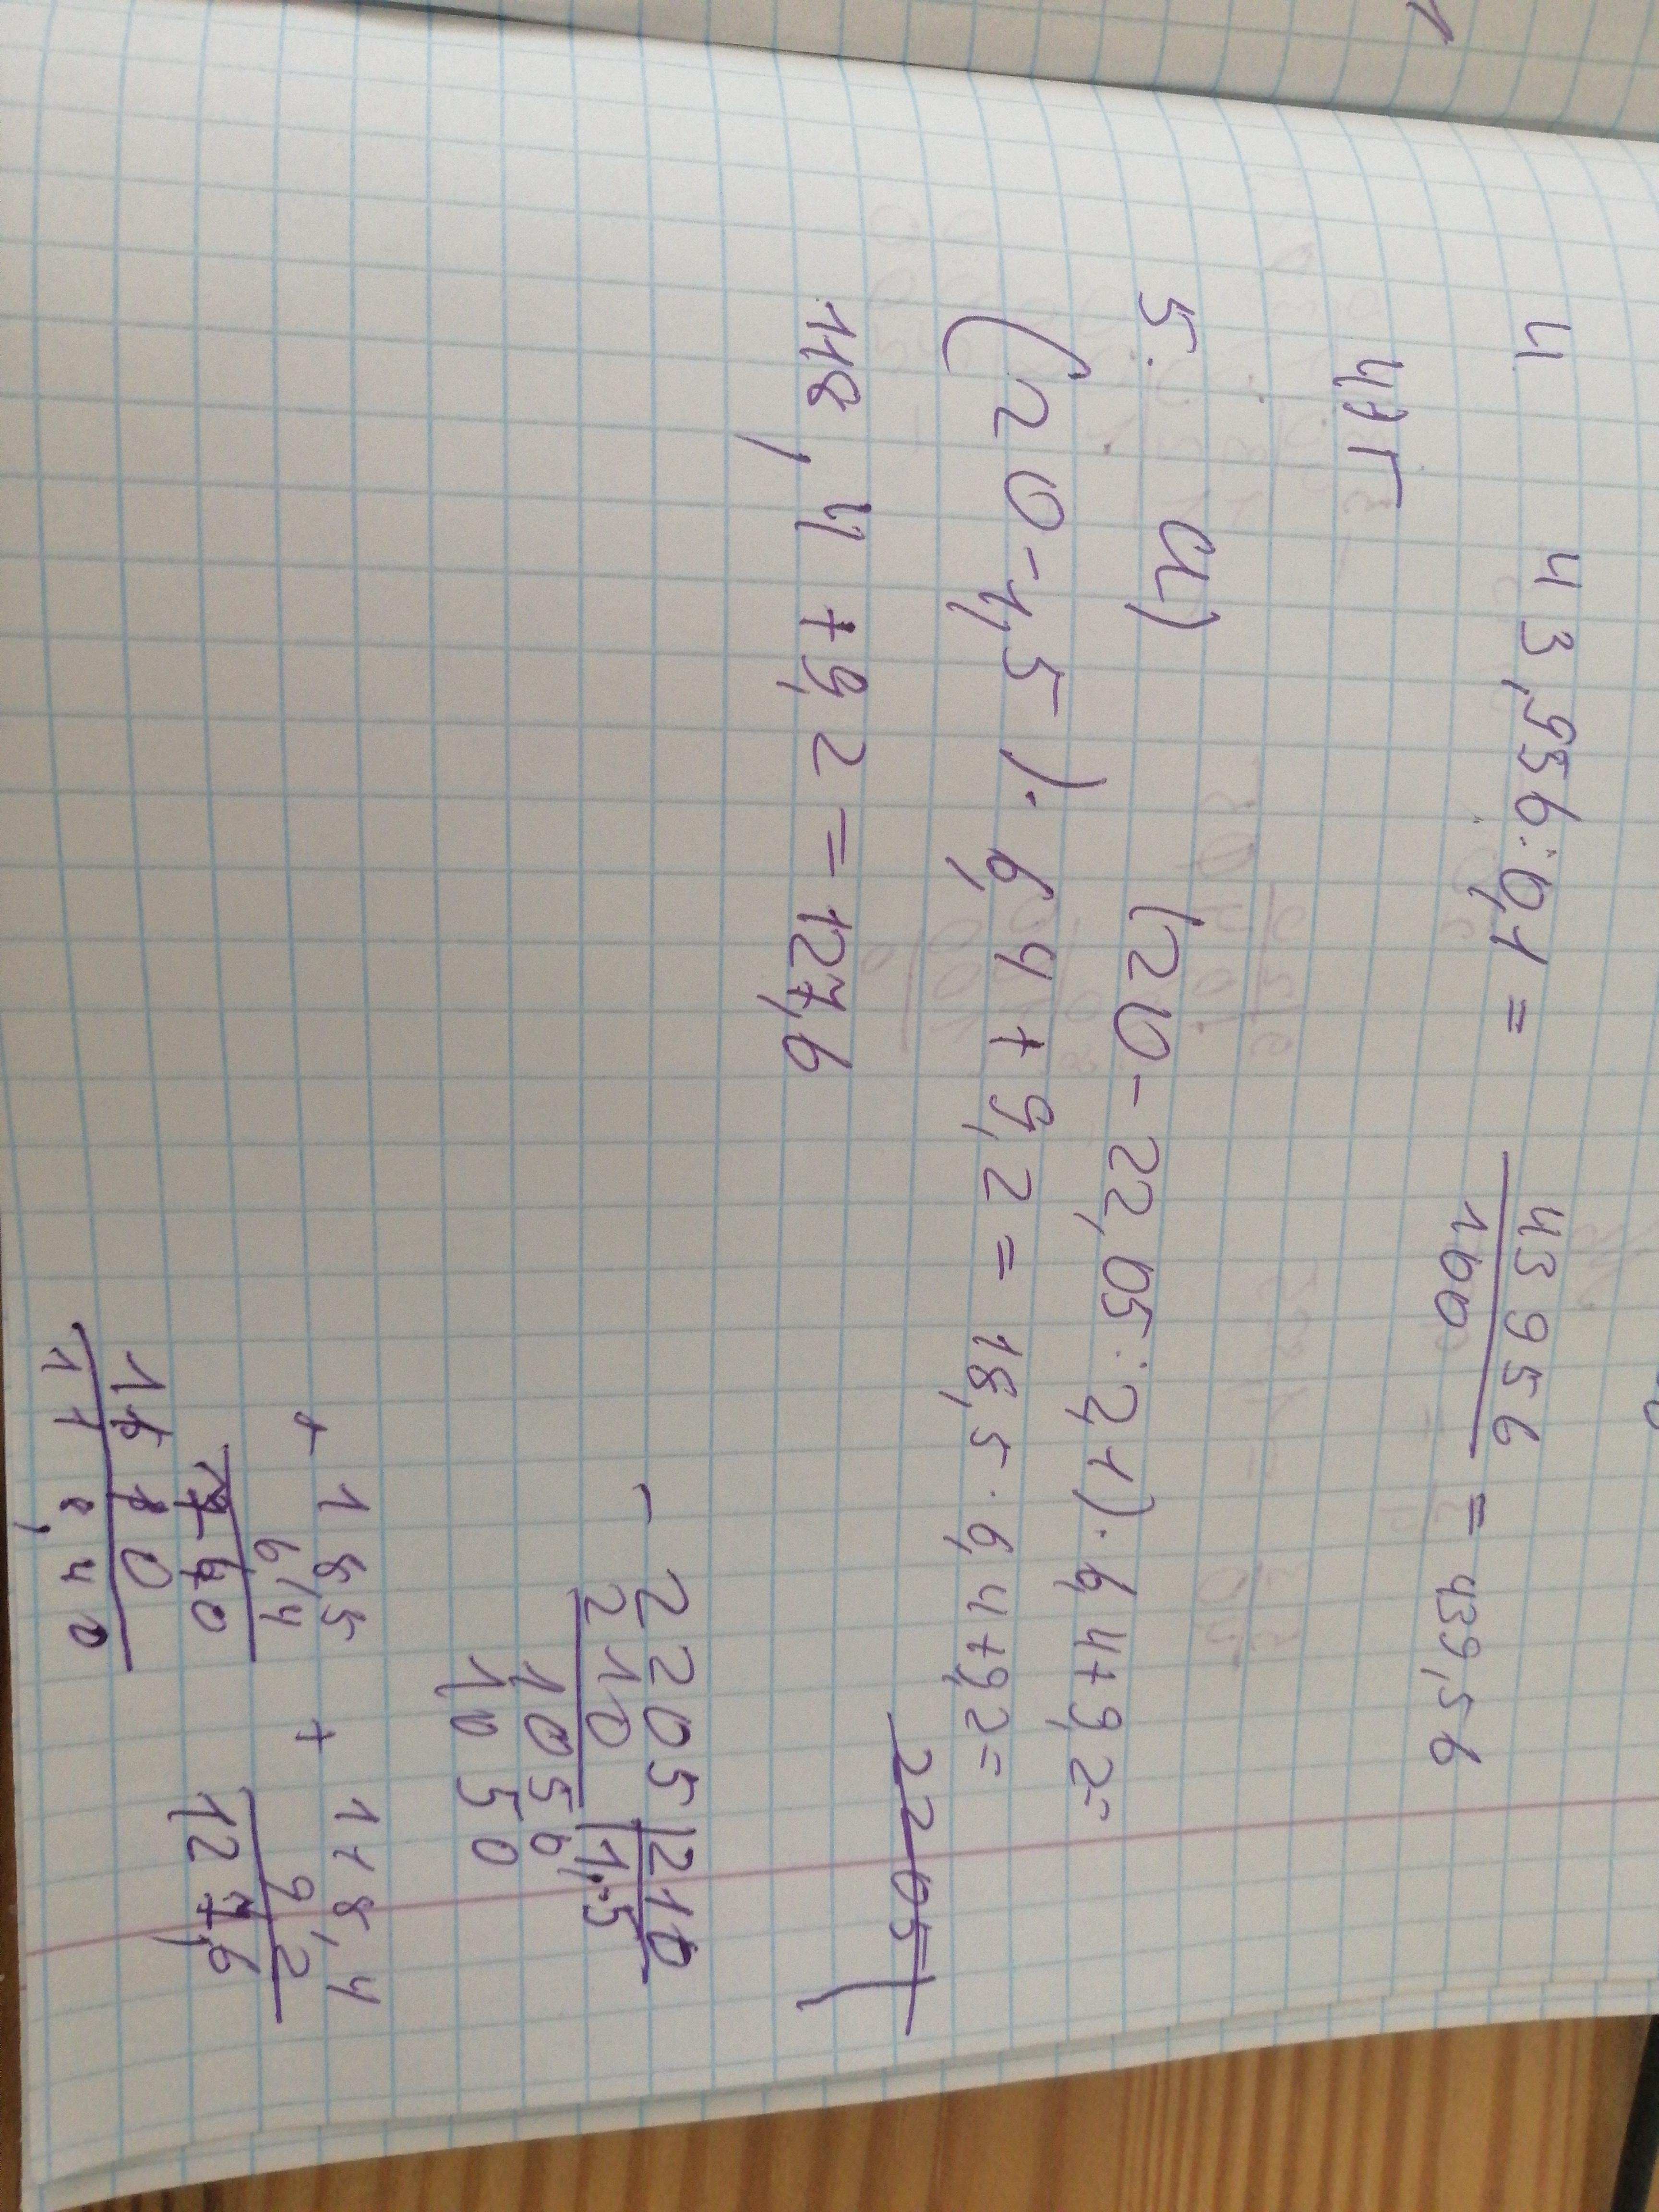 4 43,956:0,1 = 43956/100 = 439,56
4) Г
5. а) (20-22,05:2,1)·6,4+9,2=
(20-1,5)·6,4+9,2=18,5·6,4+9,2=
118,4+9,2=127,6
2205
- 2205|210
210 |1,5
1050
1050
18,5
6,4
740
1110
118,40
+ 118,4
9,2
127,6